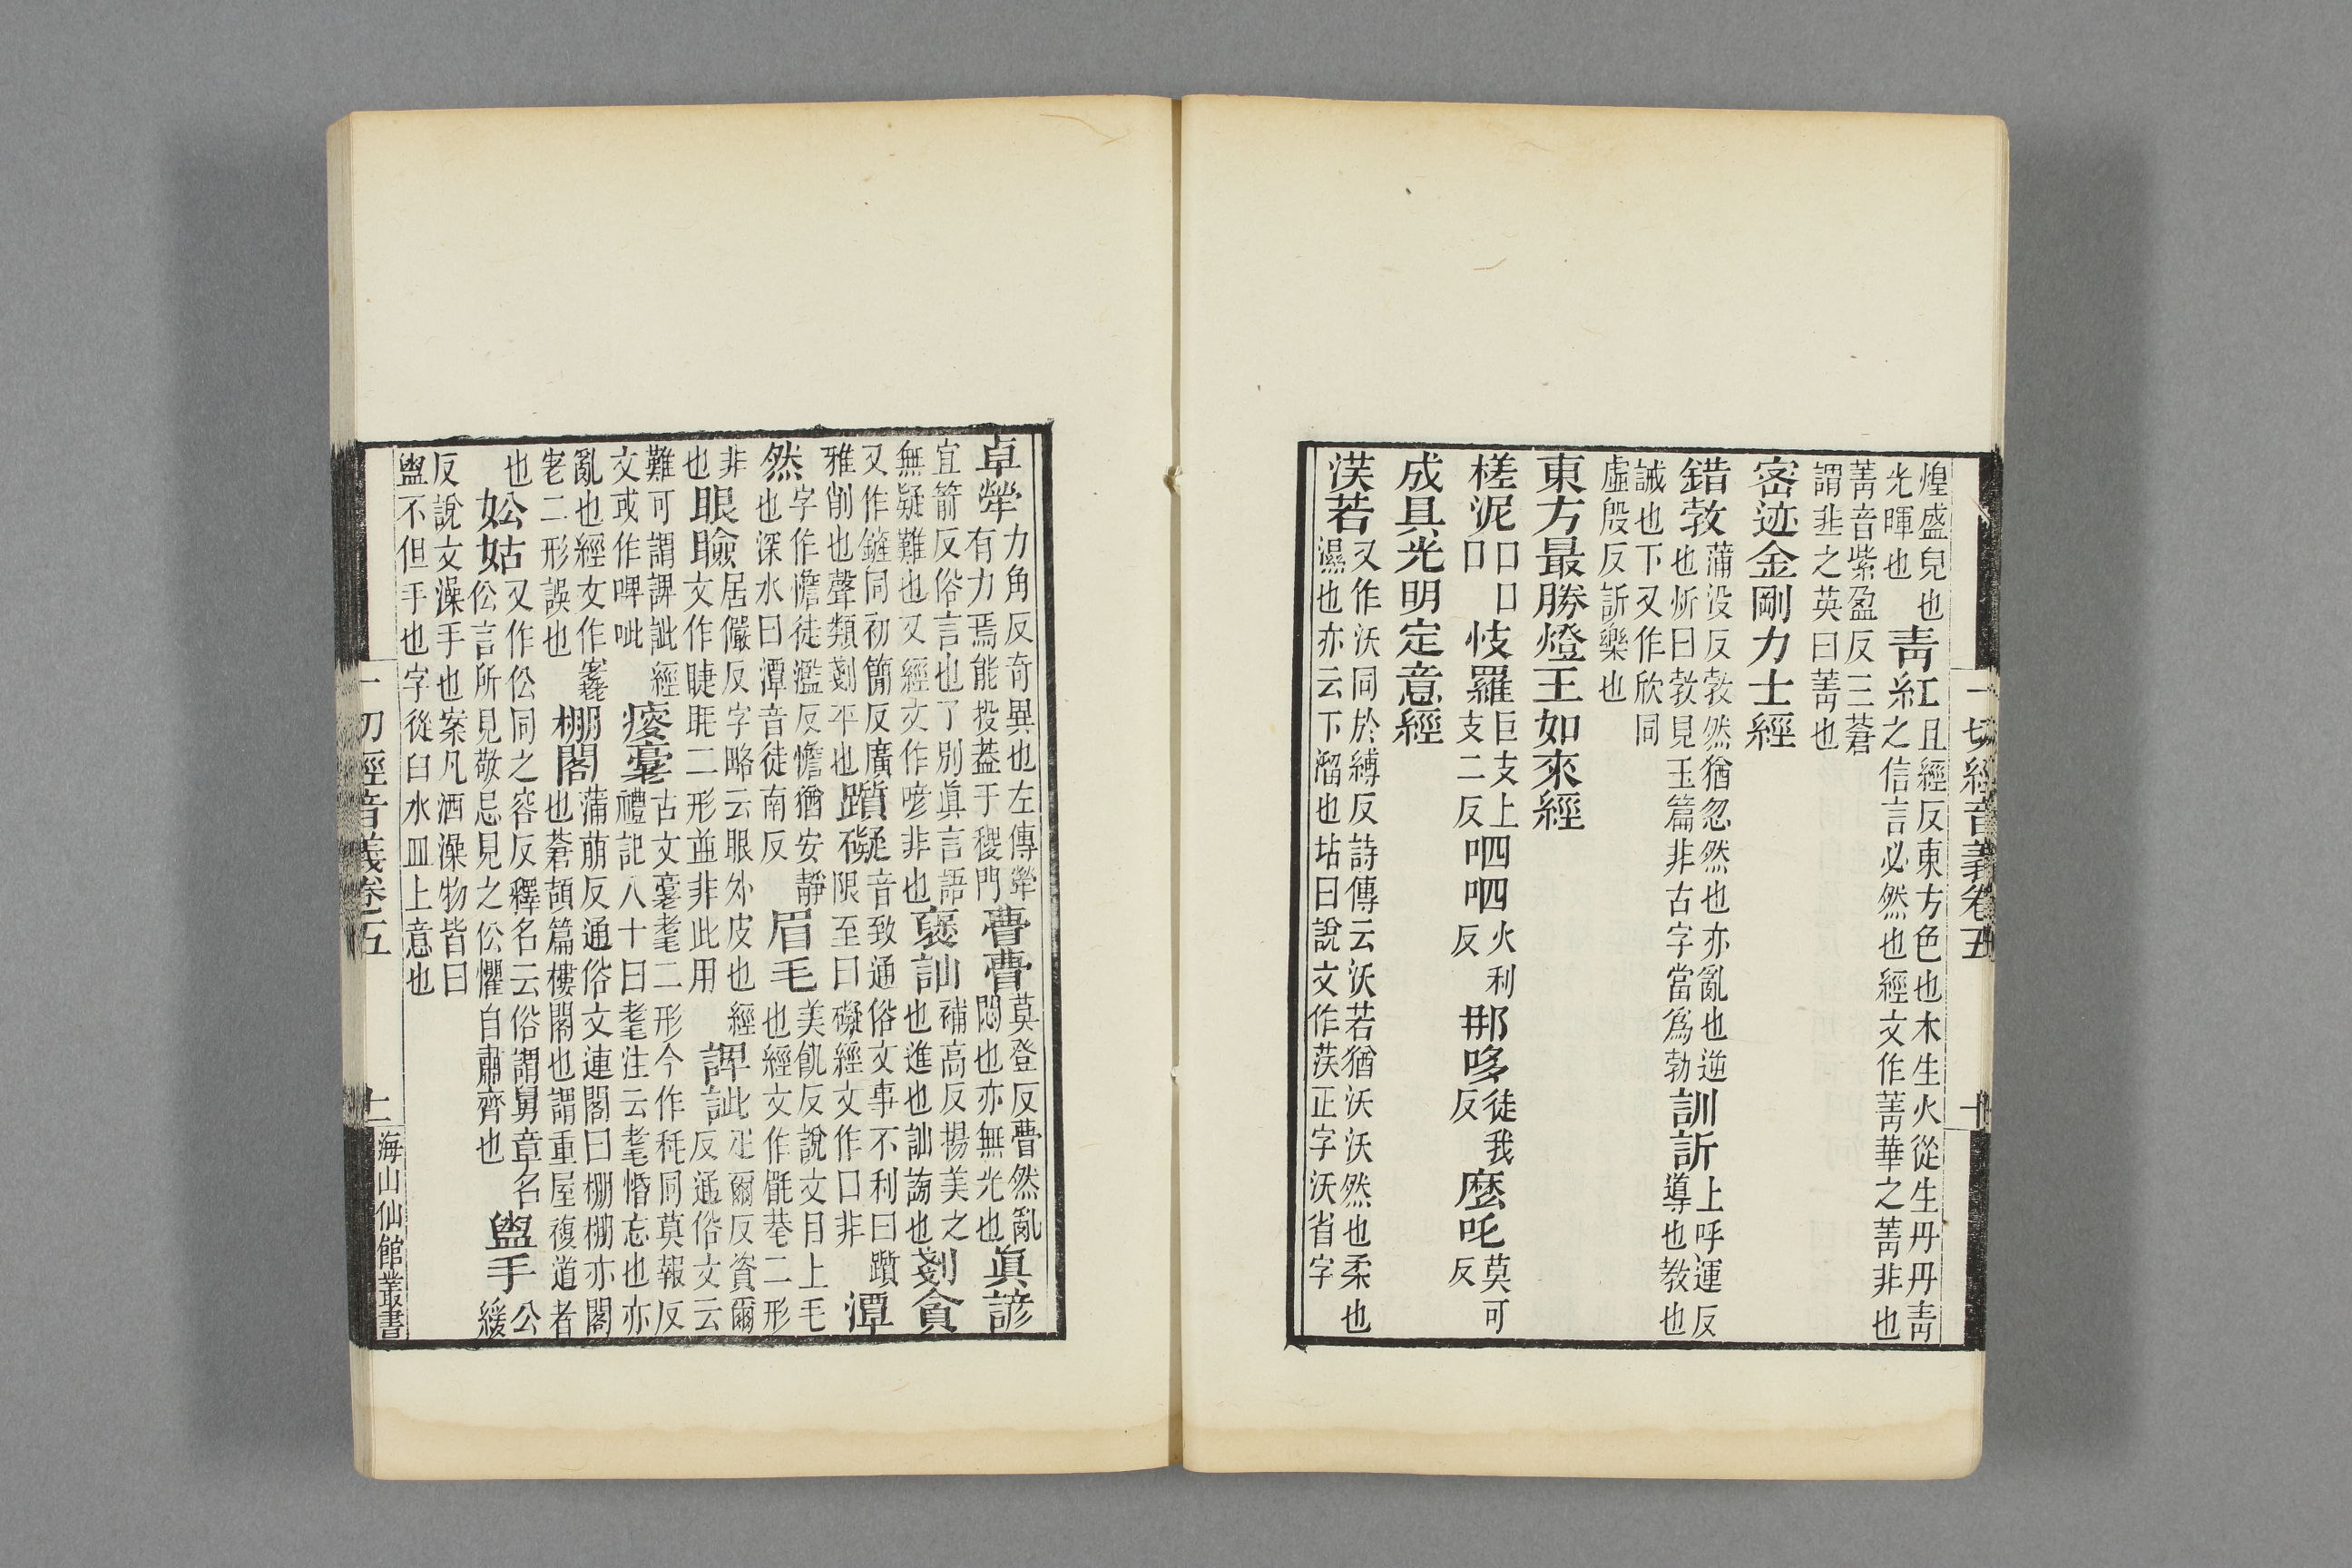 煌盛皃也
光暉也
青紅
且經反東方色也木生火從生丹丹青
之信言必然也經文作菁華之菁非也
菁音紫盈反三蒼
謂韭之英曰菁也
密迹金剛力士經
錯敦
蒲没反敦然猶忽然也亦亂也逆
也炘曰敦見玉篇非古字當爲勃
訓訢
上呼運反
導也教也
誡也下又作欣同
虛殷反訢樂也
東方最勝燈王如來經
槎泥
口口口
伎羅
巨支上
支二反
呬呬
火利
反
那哆
徒我
反
麼吒
莫可
反
成具光明定意經
渶若
又作沃同於縛反詩傳云沃若猶沃沃然也柔也
濕也亦云下溜也坫曰說文作渶正字沃省字
一切經音義卷五
卓犖
力角反奇異也左傳犖
有力焉能投葢于稷門
瞢瞢
莫登反瞢然亂
悶也亦無光也
眞諺
宜箭反俗言也了別眞言語
無疑難也又經文作喭非也
褒訕
補高反揚美之
也進也訕謗也
剗貪
又作鏟同初簡反廣
雅削也聲類剗平也
躓礙
音致通俗文事不利曰躓
限至曰礙經文作口非
潭
然
字作憺徒濫反憺猶安靜
也深水曰潭音徒南反
眉毛
美飢反說文目上毛
也經文作㲯荖二形
非
也
眼瞼
居儼反字略云眼外皮也經
文作睫䀮二形並非此用
諀訿
疕爾反資爾
反通俗文云
難可謂諀訿經
文或作啤呲
痿耄
古文耄耄二形今作秏同莫報反
禮記八十曰耄注云耄惛忘也亦
亂也經女作
㝓二形誤也
棚閣
蒲萠反通俗文連閣曰棚棚亦閣
也蒼頡篇樓閣也謂重屋複道者
也
妐姑
又作伀同之容反釋名云俗謂舅章名
伀言所見敬忌見之伀懼自肅齊也
盥手
公
緩
反說文澡手也案凡洒澡物皆曰
盥不但手也字從臼水皿上意也
一切經音義卷五
十一
海山仙館叢書